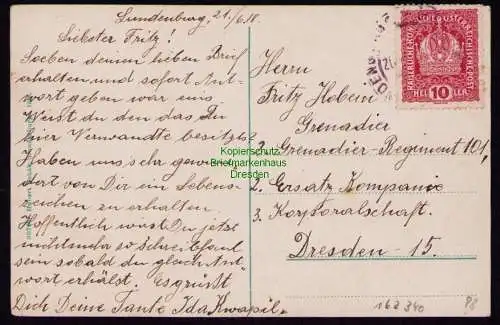 Lundenburg, 21./6.18.
Liebster Fritz!
Soeben deinen lieben Brief
erhalten und sofort Ant-
wort geben war eins
Weist du den das Du
hier Verwandte besitzt?
Haben uns sehr gewun-
dert von Dir ein Lebens-
zeichen zu erhalten.
Hoffentlich wirst Du jetzt
nicht so schreibfaul
sein sobald du gleich Ant-
wort erhälst. Es grüsst
Dich Deine Tante Ida Kwapil.
Herrn
Fritz Hobern
Grenadier
2. Grenadier-Regiment 101,
2. Ersatz Kompanie
3. Korporalschaft.
Dresden - 15.
KAISERLICHE KÖNIGLICHE ÖSTERREICHISCHE POST
HELLER 10 HELLER
Kopierschutz
Briefmarkenhaus
Dresden
162 340
P8